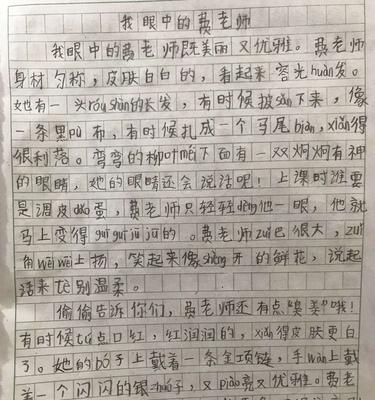 我眼中的费老师
我眼中的费老师既美丽又优雅。费老师
身材匀称，皮肤白白的，看起来容光huàn发。
她有一头róu shùn的长发，有时候披sàn下来，像
一条黑pù布，有时候扎成一个马尾biàn，xiǎn得
很利落。弯弯的柳叶眉下面有一双炯炯有神
的眼睛，她的眼睛还会说话呢！上课时谁要
是调皮dǎo蛋，费老师只轻轻dèng他一眼，他就
马上变得guī guī jǔ jǔ的。费老师zuǐ巴很大，zuǐ
角wēi wēi上扬，笑起来像shèng开的鲜花，说起
话来tè别温柔。
偷偷告诉你们，费老师还有点"臭美"哦！
有时候tú点口红，红润润的，xiǎn得皮肤更白
了。她的bó子上戴着一条金项链，手wàn上戴
着一个闪闪的银zhuó子，又piào亮又优雅。费老